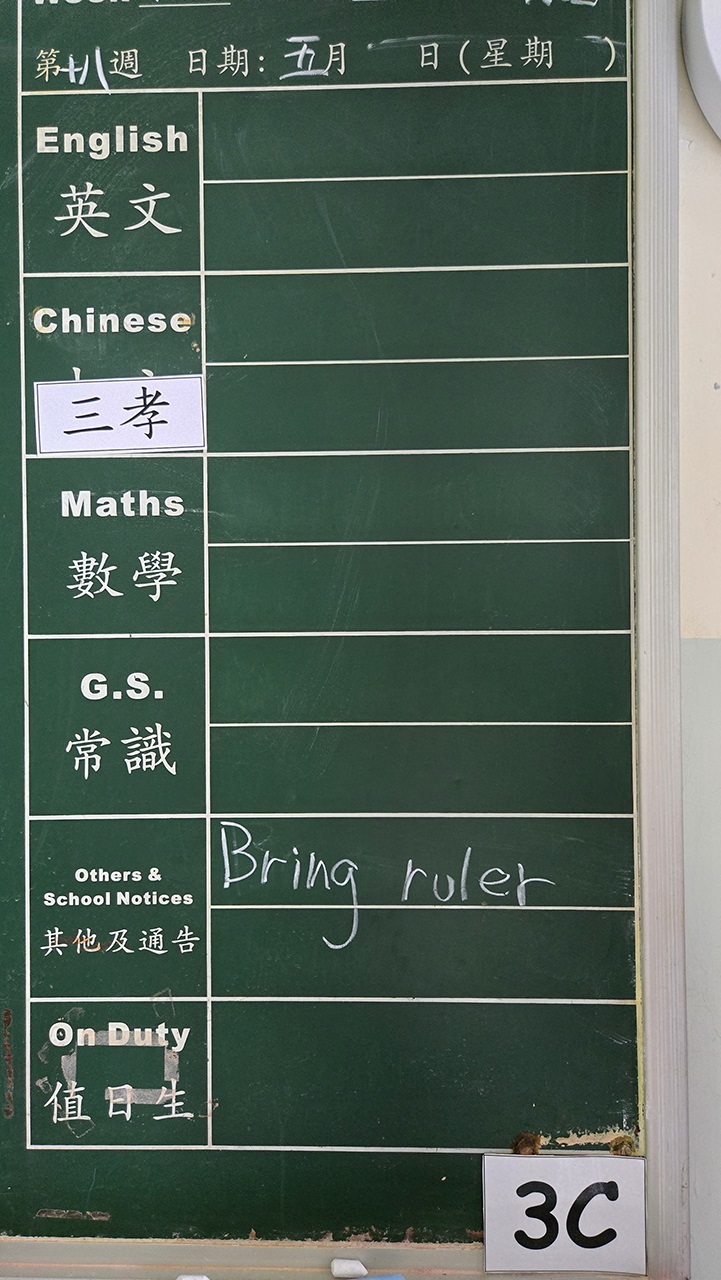 第十八週 日期: 五月 日(星期 )
English
英文
Chinese
三孝
Maths
數學
G.S.
常識
Others &
School Notices
其他及通告
Bring ruler
On Duty
值日生
3C